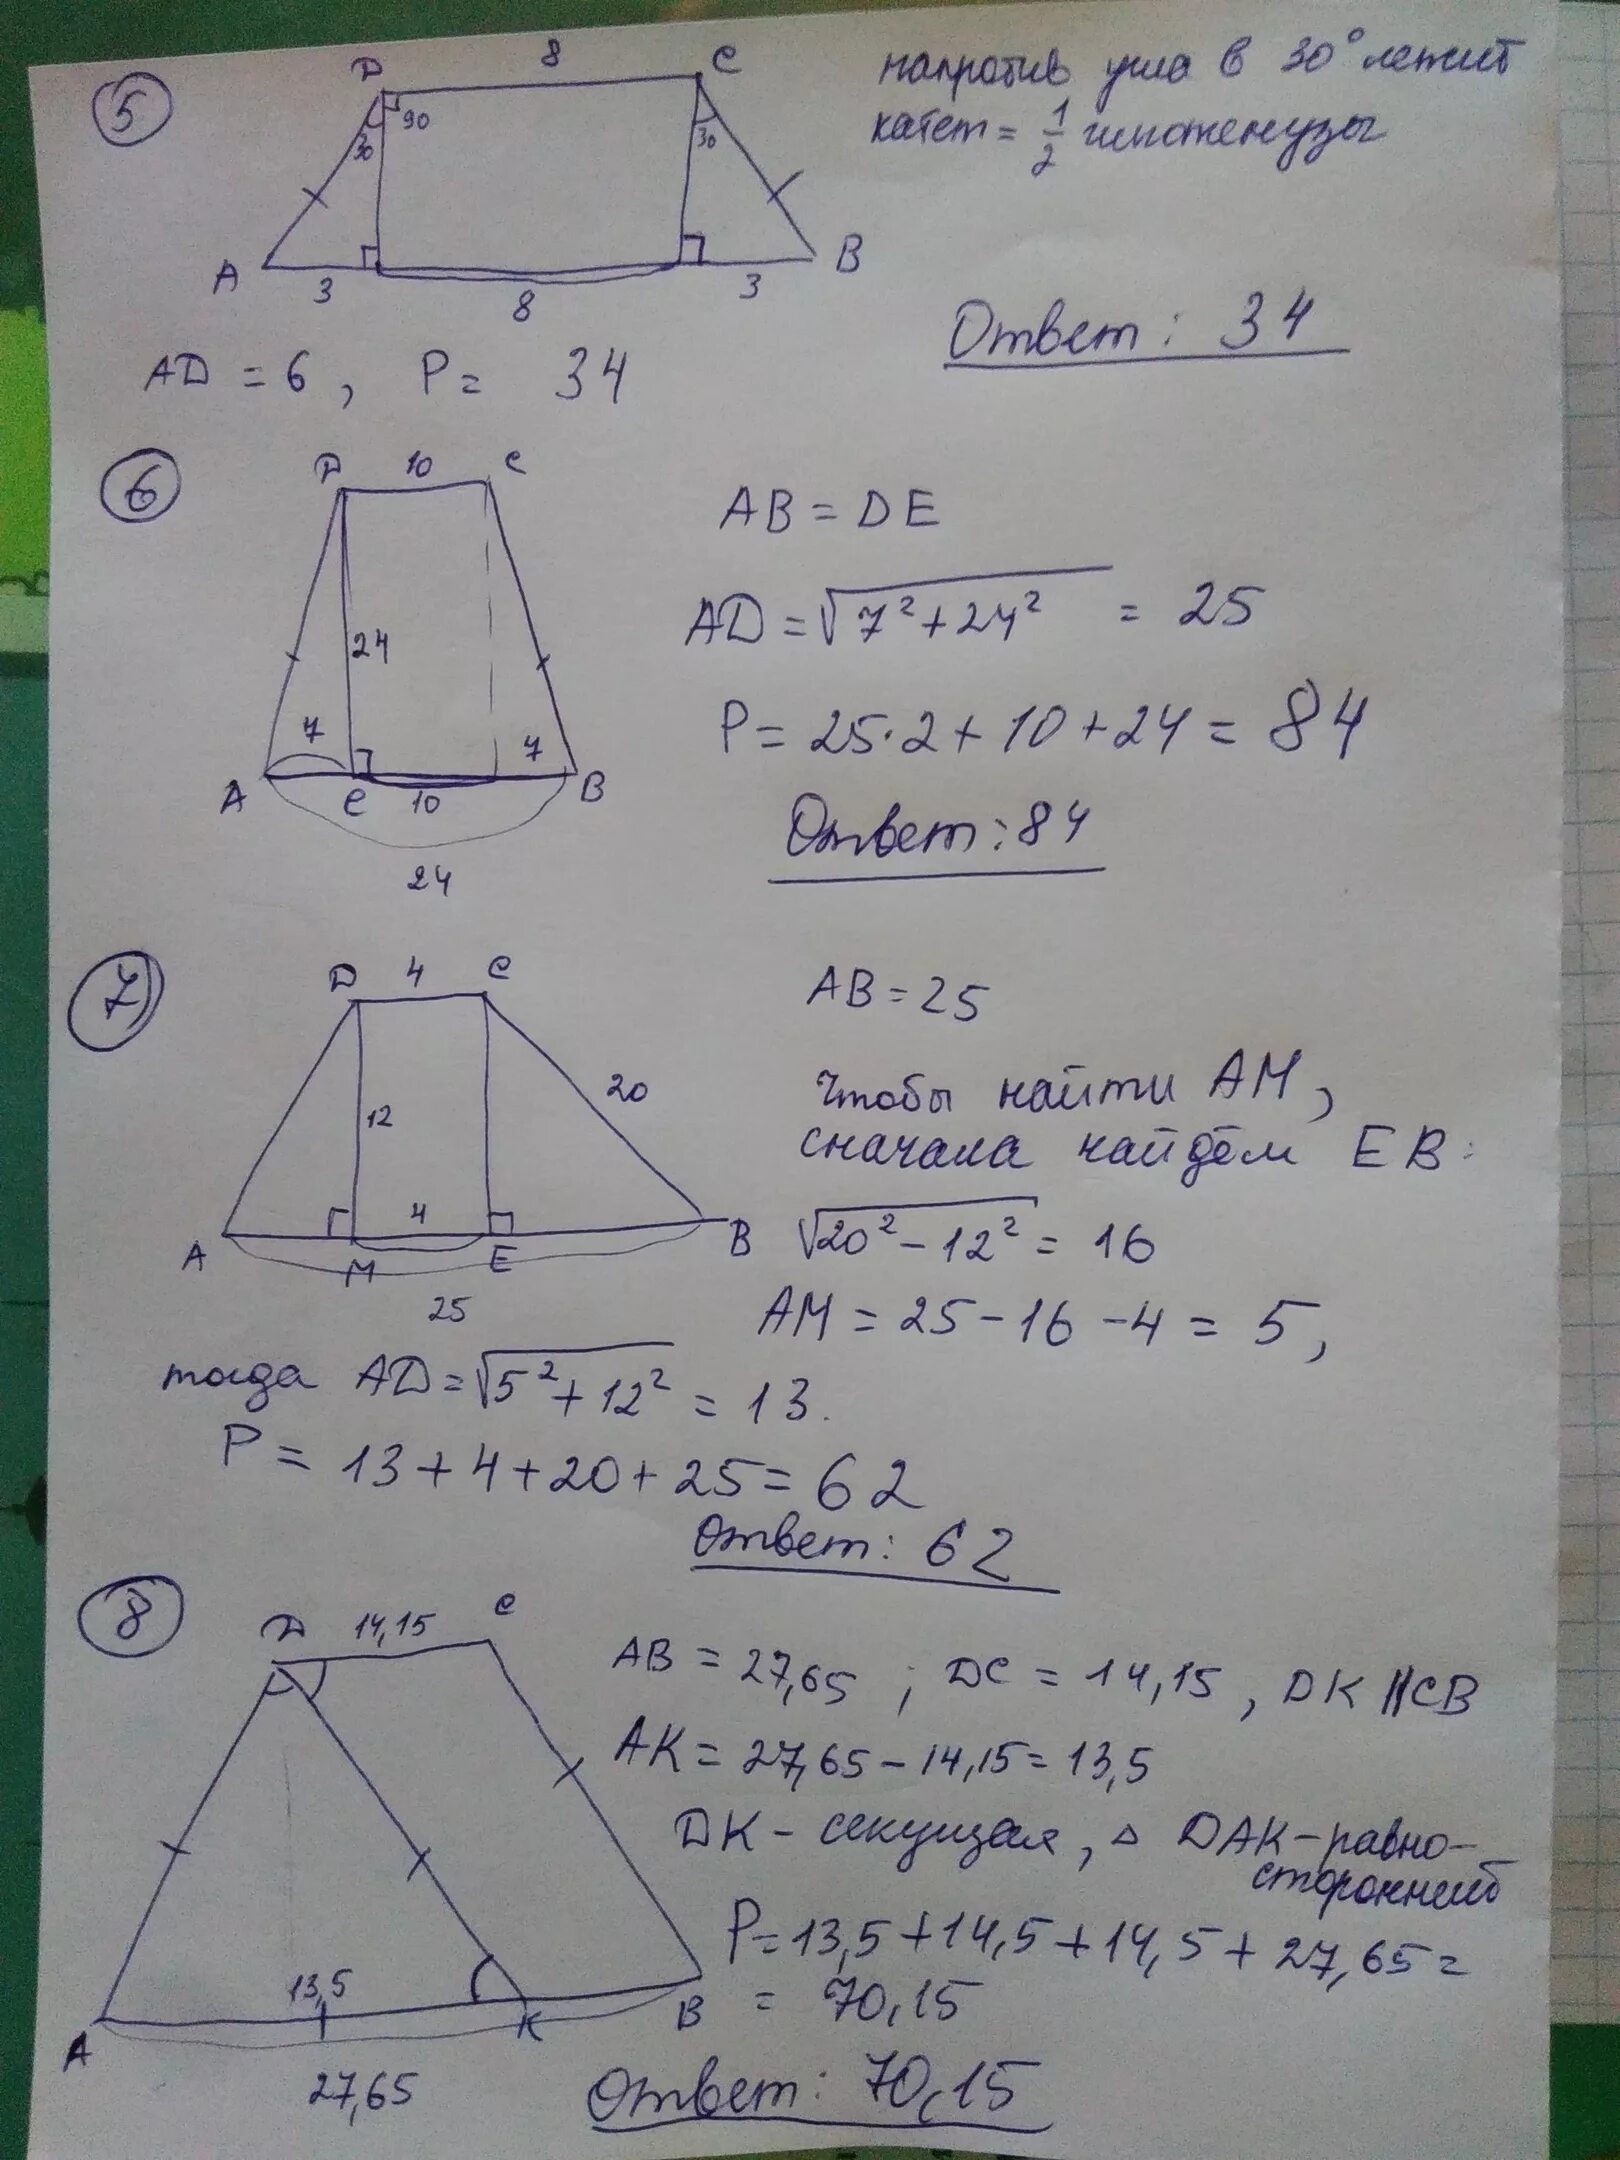 5
D 8 C
90
30 30
A 3 8 3 B
напротив угла в 30° лежит
катет = 1/2 гипотенузы
Ответ: 34
AD = 6, P = 34
6
D 10 C
24
7 7
A e 10 B
24
AB = DE
AD = √7²+24² = 25
P = 25·2+10+24 = 84
Ответ: 84
7
D 4 C
12 20
4
A M E B
25
AB = 25
Чтобы найти AM,
сначала найдём EB:
√20²-12² = 16
AM = 25-16-4 = 5,
тогда AD = √5²+12² = 13.
P = 13+4+20+25 = 62
Ответ: 62
8
D 14,15 C
13,5
A K B
27,65
AB = 27,65; DC = 14,15, DK || CB
AK = 27,65-14,15 = 13,5
DK - секущая, △ DAK - равно-
сторонний
P = 13,5+14,5+14,5+27,65 =
= 70,15
Ответ: 70,15